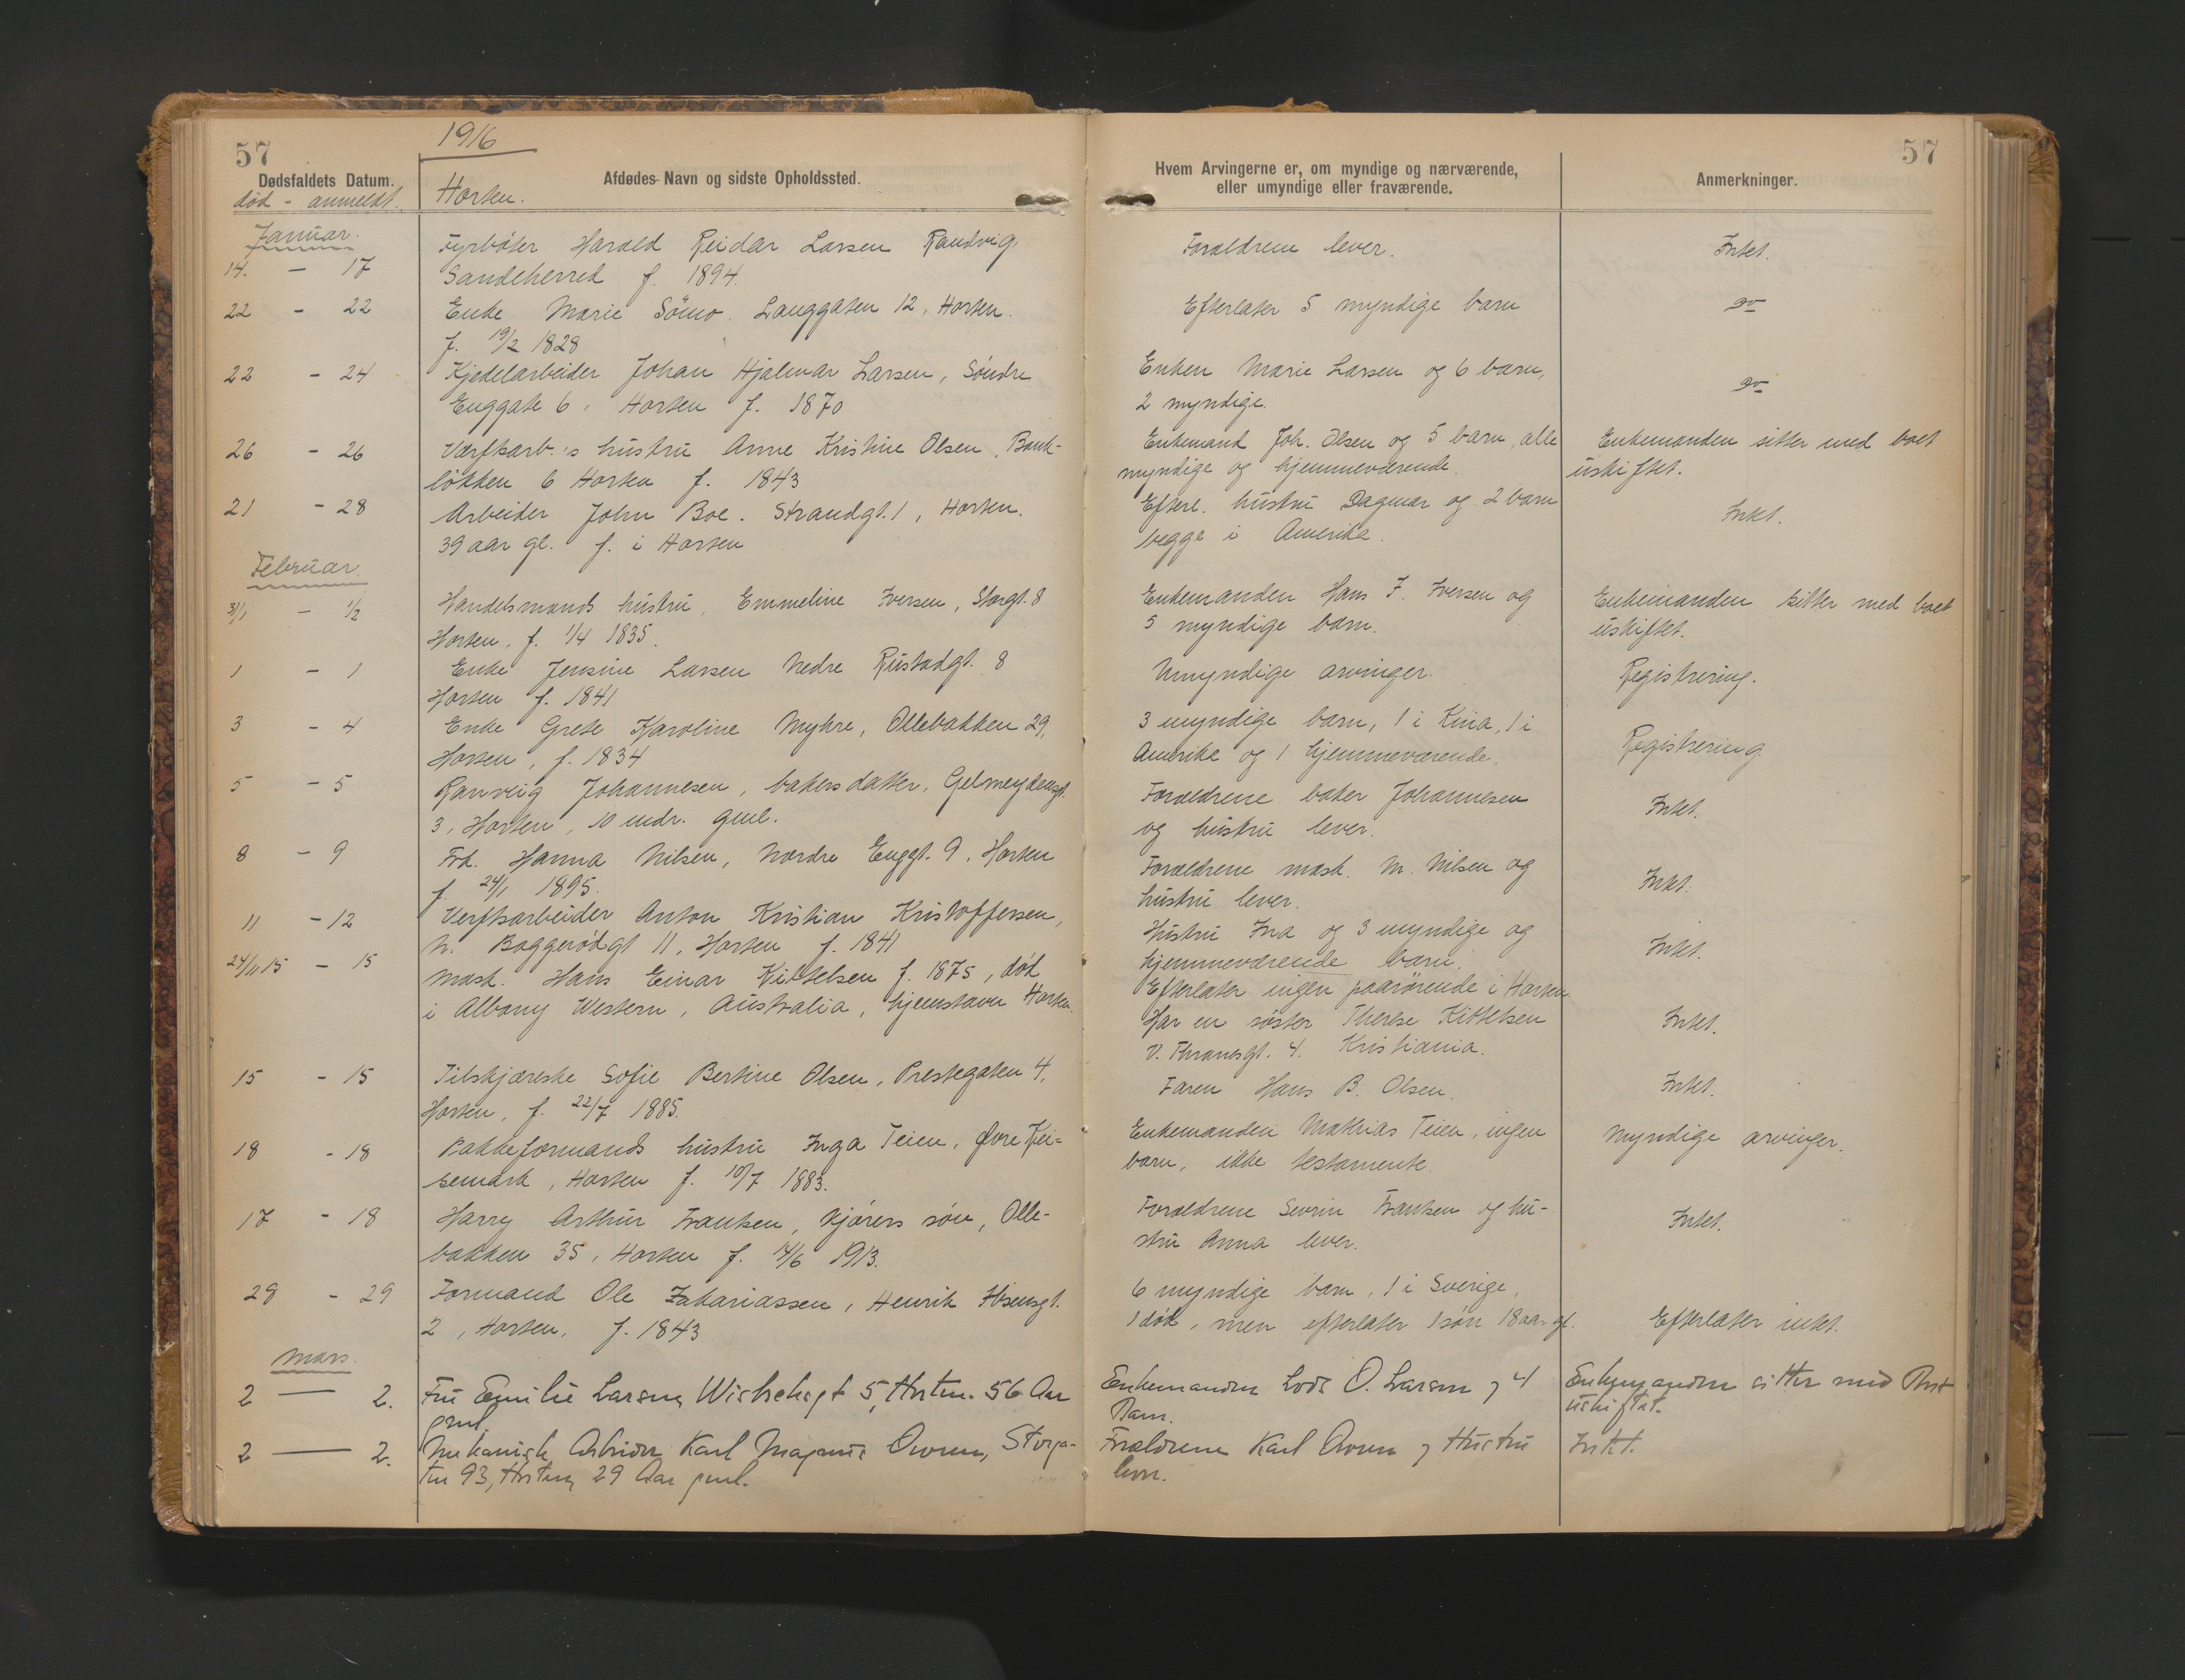 57
1916
Dødsfaldets Datum.
død - anmeldt.
Afdødes Navn og sidste Opholdssted.
Horten.
Hvem Arvingerne er, om myndige og nærværende,
eller umyndige eller fraværende.
Anmerkninger.
57
Januar.
14. - 17
Fyrbøter Harald Reidar Larsen Ranvig
Sandeherred f. 1894.
Forældrene lever.
Intet.
22 - 22
Enke Marie Sømo. Langgaten 12, Horten.
f. 19/2 1828
Efterlater 5 myndige barn
do
22 - 24
Kjedelarbeider Johan Hjalmar Larsen, Søndre
Enggate 6, Horten f. 1870
Enken Marie Larsen og 6 barn,
2 myndige.
do
26 - 26
Værftsarb.'s hustru Anne Kristine Olsen, Bank-
løkken 6 Horten f. 1843
Enkemand Joh. Olsen og 5 barn, alle
myndige og hjemmeværende.
Enkemanden sitter med boet
uskiftet.
21 - 28
Arbeider John Boe. Strandgt. 1, Horten.
39 aar gl. f. i Horten
Efterl. hustru Dagmar og 2 barn
begge i Amerika.
Intet.
Februar.
31/1 - 1/2
Handelsmands hustru, Emmeline Iversen, Storgt. 8
Horten, f. 1/4 1835.
Enkemanden Hans F. Iversen og
5 myndige barn.
Enkemanden sitter med boet
uskiftet.
1 - 1
Enke Jensine Larsen Nedre Rustadgt. 8
Horten f. 1841
Umyndige arvinger.
Registrering.
3 - 4
Enke Grete Karoline Myhre, Ollebakken 29,
Horten, f. 1834
3 myndige barn, 1 i Kina, 1 i
Amerika og 1 hjemmeværende.
Registrering.
5 - 5
Ranveig Johannesen, bakers datter, Gelmeydensgt.
3, Horten, 10 mdr. gml.
Forældrene baker Johannesen
og hustru lever.
Intet.
8 - 9
Frk. Hanna Nilsen, Nordre Enggt. 9, Horten
f. 24/1 1895.
Forældrene mask. M. Nilsen og
hustru lever.
Intet.
11 - 12
Verftsarbeider Anton Kristian Kristoffersen,
N. Baggerødgt 11, Horten f. 1841
Hustru Ina og 3 myndige og
hjemmeværende barn.
Intet.
24/11 15 - 15
Mask. Hans Einar Kittelsen f. 1875, død
i Albany Western, Australia, hjemstavn Horten.
Efterlater ingen paarørende i Horten.
Har en søster Therese Kittelsen
V. Thranesgt. 4. Kristiania.
Intet.
15 - 15
Tilskjærske Sofie Bertine Olsen, Prestegaten 4,
Horten, f. 22/7 1885.
Faren Hans B. Olsen.
Intet.
18 - 18
Bakkeformands hustru Inga Teien, Øvre Kei-
semark, Horten f. 10/7 1883.
Enkemanden Mathias Teien, ingen
barn, ikke testamente.
Myndige arvinger.
17 - 18
Harry Arthur Frantsen, kjørers søn, Olle-
bakken 35, Horten f. 14/6 1913.
Forældrene Sevrin Frantsen og hu-
stru Anna lever.
Intet.
29 - 29
Formand Ole Zakariassen, Henrik Ibsensgt.
2, Horten, f. 1843
6 myndige barn, 1 i Sverige,
1 død, men efterlater 1 søn 18 aar gl.
Efterlater intet.
Mars.
2 - 2.
Fru Emilie Larsen, Wichsthsgt 5, Horten. 56 Aar
gml.
Enkemanden Lods O. Larsen og 4
Barn.
Enkemanden sitter med Bot
uskiftet.
2 - 2.
Mekanisk Arbeider Karl Magnus Ovren, Storga-
ten 93, Horten, 29 Aar gml.
Forældrene Karl Ovren og Hustru
lever.
Intet.